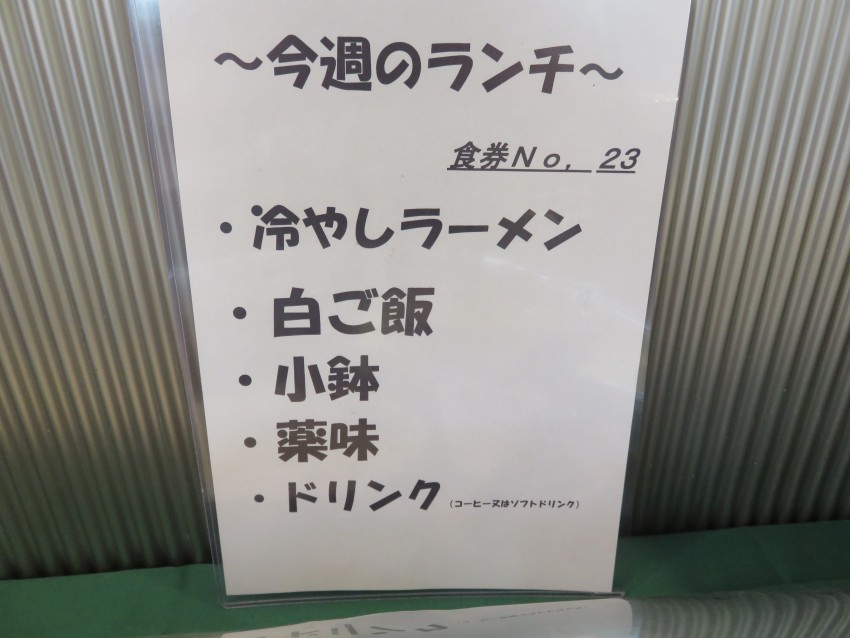 ～今週のランチ～
食券No, 23
・冷やしラーメン
・白ご飯
・小鉢
・薬味
・ドリンク（コーヒー又はソフトドリンク）